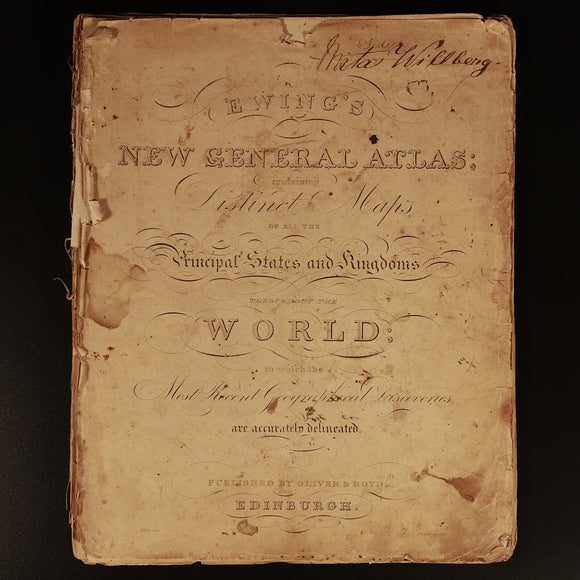 Willberg.
EWING'S
NEW GENERAL ATLAS;
containing
Distinct Maps
OF ALL THE
Principal States and Kingdoms
THROUGHOUT THE
WORLD;
in which the
Most Recent Geographical Discoveries,
are accurately delineated.
PUBLISHED BY OLIVER & BOYD,
EDINBURGH.